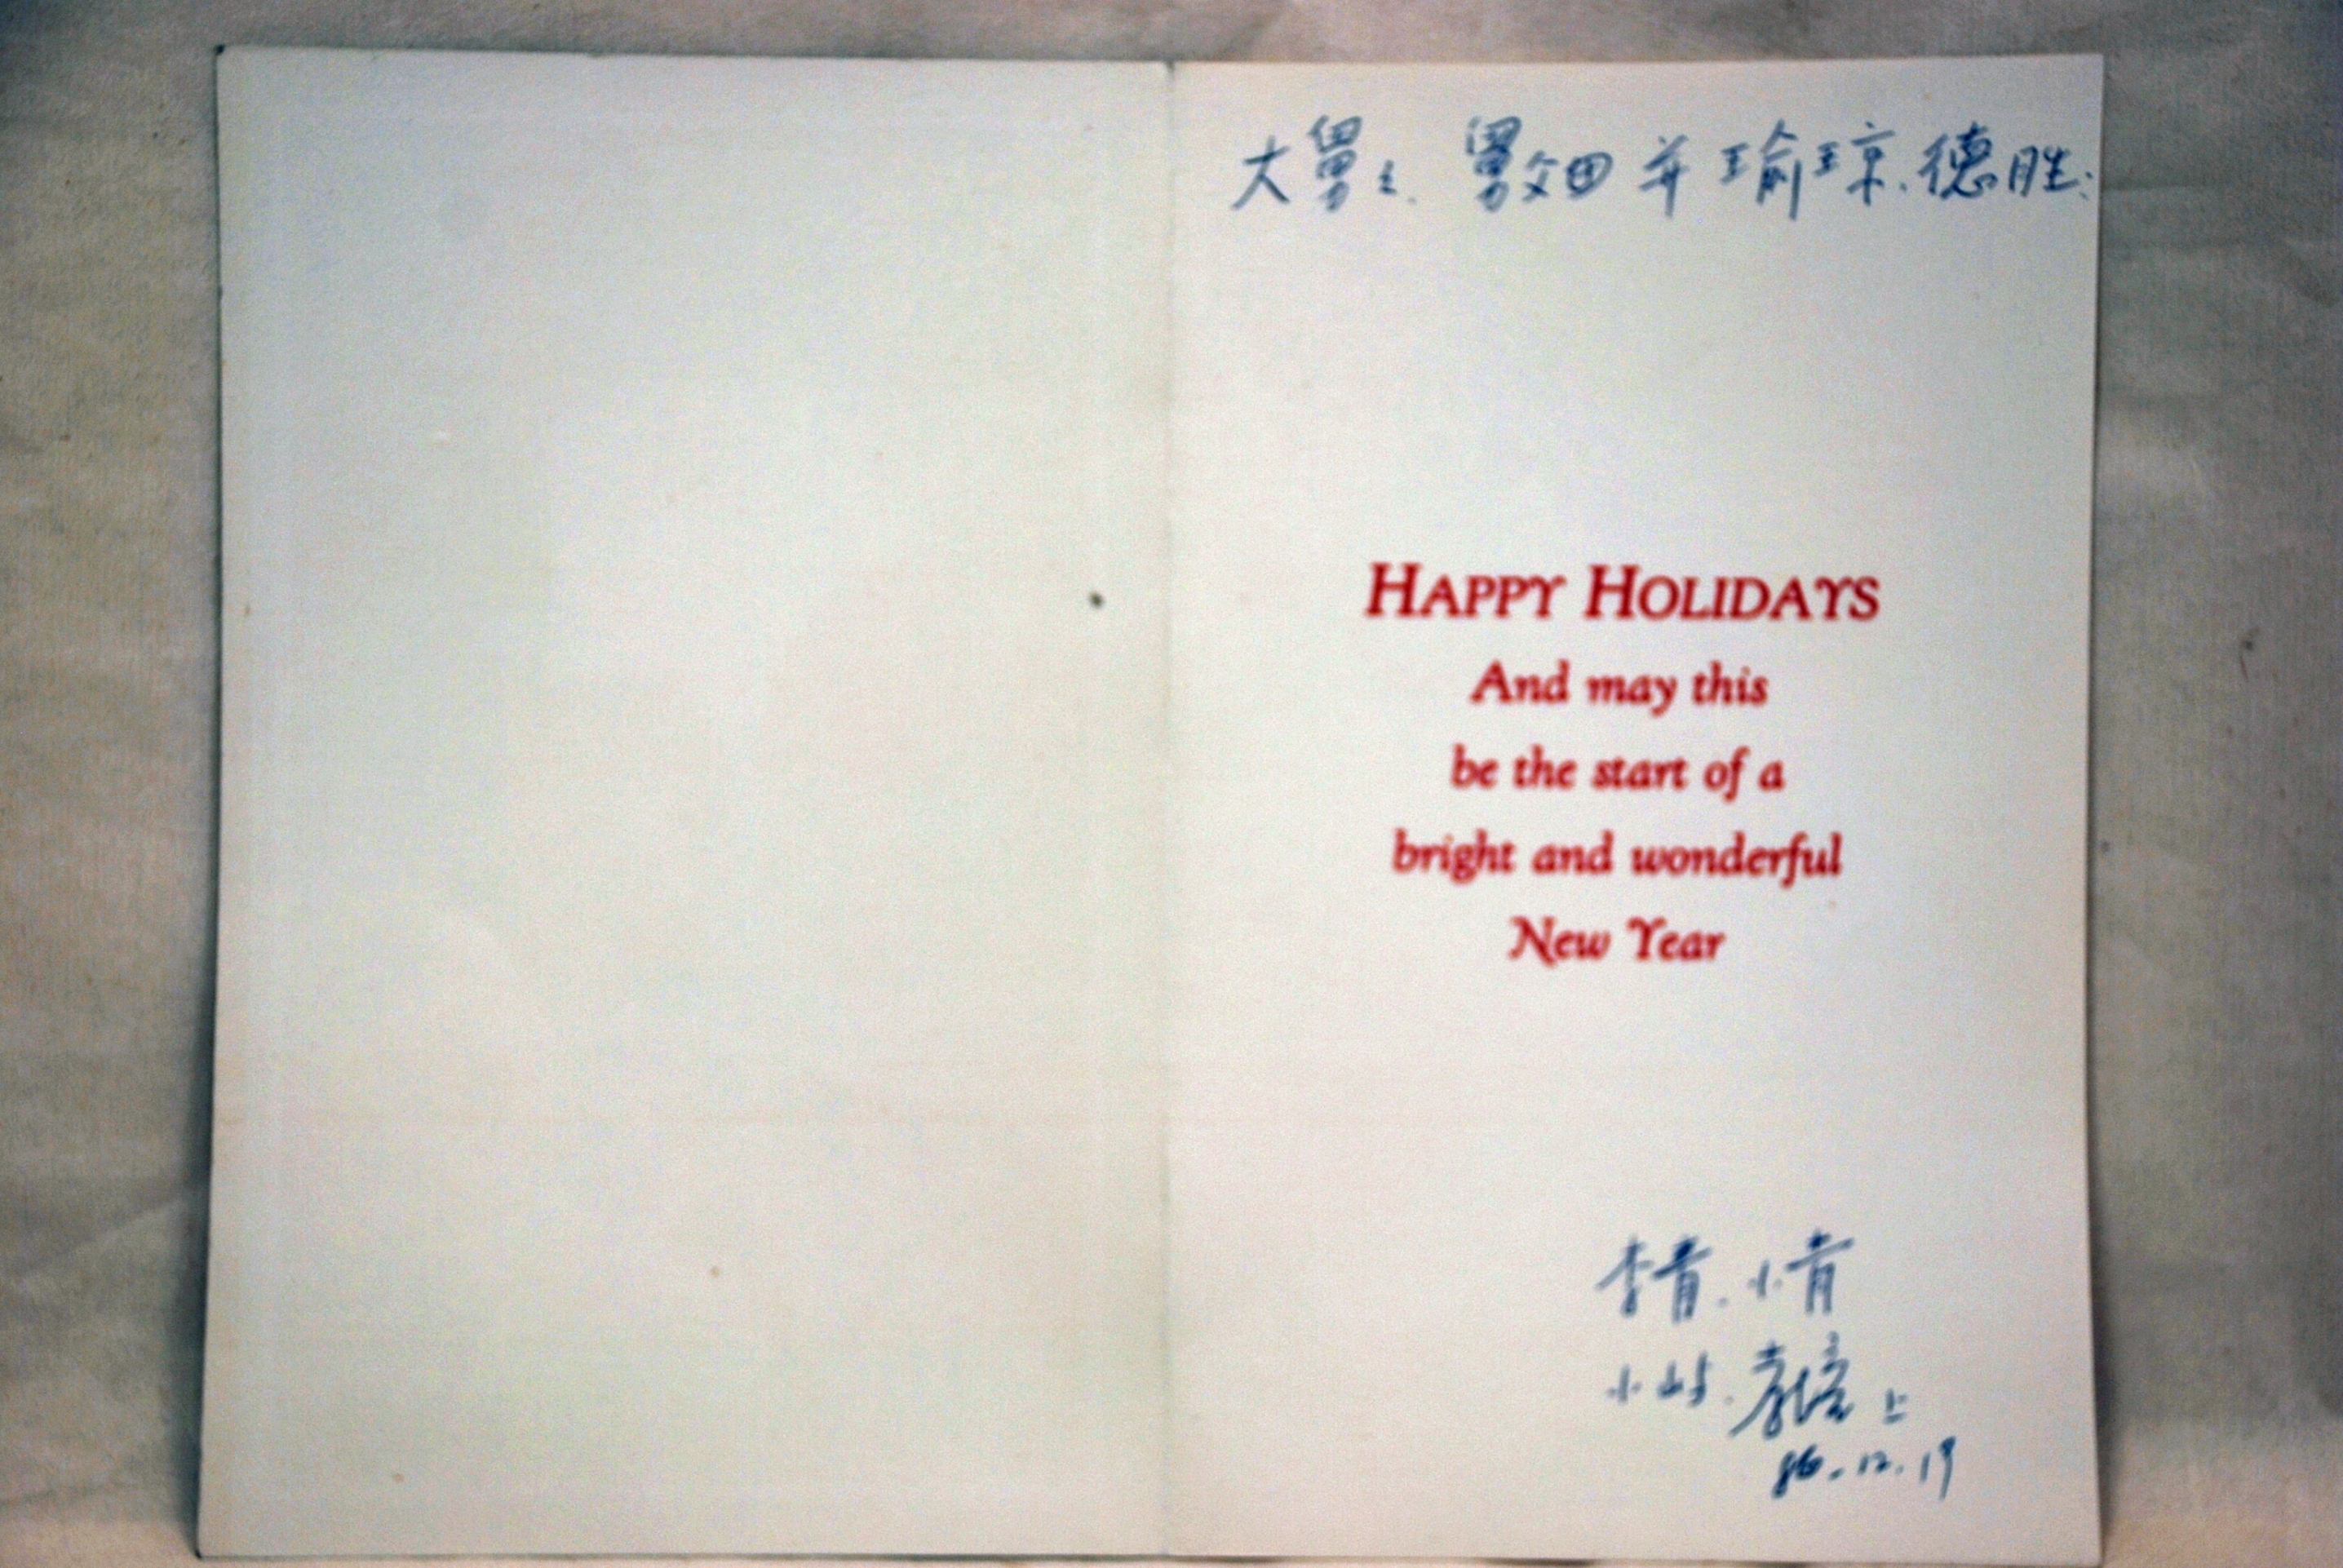 大舅、舅父田并瑜琼、德胜:
HAPPY HOLIDAYS
And may this
be the start of a
bright and wonderful
New Year
李青、小青
小 上
86.12.19